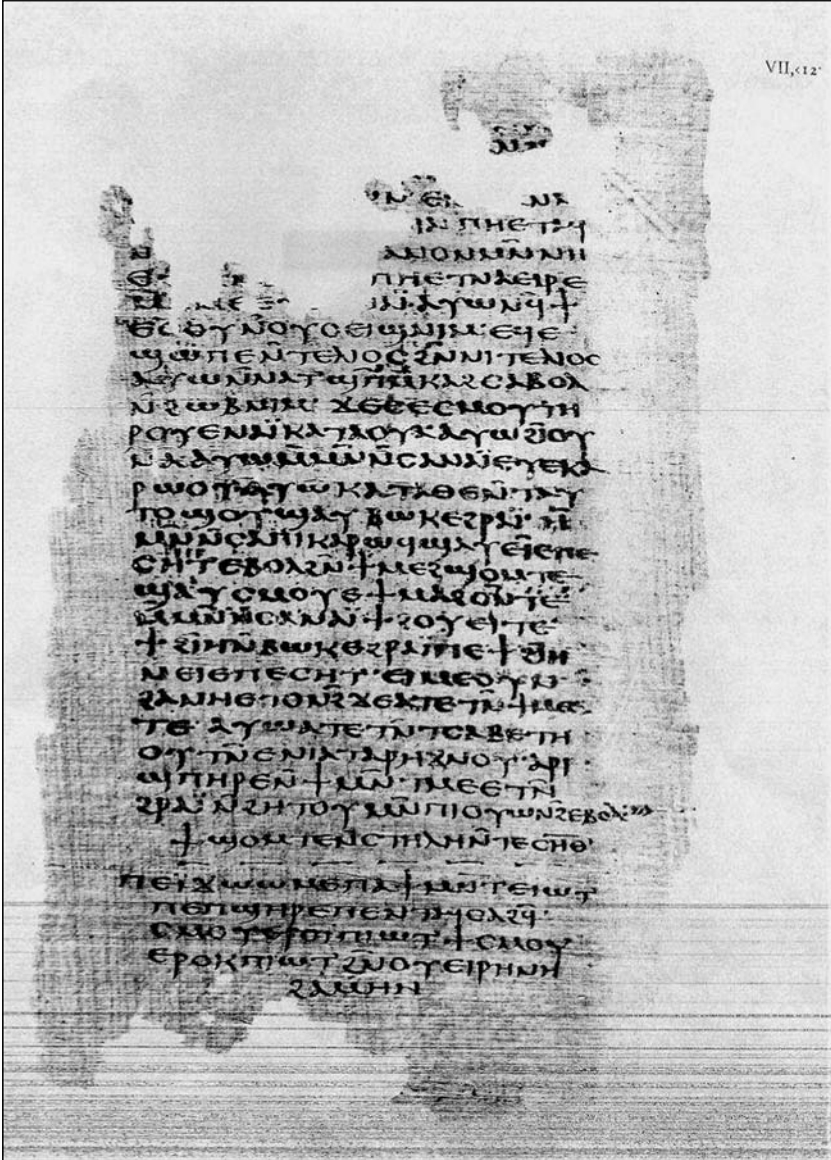 ⲡⲏ ⲉⲧⲁϥ
ⲁⲛⲟⲛ ⲙⲛ̄ ⲛⲏ
ⲡⲏ ⲉⲧⲛⲁⲉⲓⲣⲉ
ⲁⲩⲱ ⲛϥ̄ϯ
ⲉⲟⲟⲩ ⲛ̄ⲟⲩⲟⲉⲓϣ ⲛⲓⲙ· ⲉϥⲉ
ϣⲱⲡⲉ ⲛ̄ⲧⲉⲗⲓⲟⲥ ϩⲛ̄ ⲛⲓⲧⲉⲗⲓⲟⲥ
ⲁⲩⲱ ⲛ̄ⲛⲁⲧϣⲡ̄ ⲙ̄ⲕⲁϩ ⲥⲁⲃⲟⲗ
ⲛ̄ϩⲱⲃ ⲛⲓⲙ· ϫⲉ ⲥⲉⲥⲙⲟⲩ ⲧⲏ
ⲣⲟⲩ ⲉⲛⲁⲓ̈ ⲕⲁⲧⲁ ⲟⲩⲁ· ⲁⲩⲱ ϩⲓ ⲟⲩ
ⲙⲁ ⲁⲩⲱ ⲙⲛ̄ⲛ̄ⲥⲁ ⲛⲁⲓ̈ ⲉⲩⲉⲕⲁ
ⲣⲱⲟⲩ· ⲁⲩⲱ ⲕⲁⲧⲁ ⲑⲉ ⲛ̄ⲧⲁⲩ
ⲧⲟϣⲟⲩ ϣⲁⲩⲃⲱⲕ ⲉϩⲣⲁⲓ̈· ⲏ̄
ⲙⲛ̄ⲛ̄ⲥⲁ ⲡⲓⲕⲁⲣⲱϥ ϣⲁⲩⲉⲓ ⲉⲡⲉ
ⲥⲏⲧ ⲉⲃⲟⲗ ϩⲛ̄ ϯⲙⲉϩϣⲟⲙⲧⲉ
ϣⲁⲩⲥⲙⲟⲩ ⲉϯⲙⲁϩⲥⲛ̄ⲧⲉ·
ⲙⲛ̄ⲛ̄ⲥⲁ ⲛⲁⲓ̈ ϯϩⲟⲩⲉⲓⲧⲉ
ϯϩⲓⲏ ⲛ̄ⲃⲱⲕ ⲉϩⲣⲁⲓ̈ ⲡⲉ ϯϩⲓⲏ
ⲛ̄ⲉⲓ ⲉⲡⲉⲥⲏⲧ· ⲉⲓⲙⲉ ⲟⲩⲛ
ϩⲱⲥ ⲛⲏ ⲉⲧⲟⲛϩ̄ ϫⲉ ⲁⲧⲉⲧⲛ̄ϯⲙⲉ
ⲧⲉ· ⲁⲩⲱ ⲁⲧⲉⲧⲛ̄ⲧⲥⲁⲃⲉ ⲧⲏ
ⲟⲩⲧⲛ̄ ⲉⲛⲓⲁⲧⲁⲣⲏϫⲛⲟⲩ· ⲁⲣⲓ
ϣⲡⲏⲣⲉ ⲛ̄ϯⲙⲛ̄ⲧⲙⲉ ⲉⲧⲛ̄
ϩⲣⲁⲓ̈ ⲛ̄ϩⲏⲧⲟⲩ ⲙⲛ̄ ⲡⲓⲟⲩⲱⲛϩ̄ ⲉⲃⲟⲗ·
ϯϣⲟⲙⲧⲉ ⲛ̄ⲥⲧⲏⲗⲏ ⲛ̄ⲧⲉ ⲥⲏⲑ·
ⲡⲉⲓ̈ϫⲱⲱⲙⲉ ⲡⲁϯⲙⲛ̄ⲧⲉⲓⲱⲧ
ⲡⲉ ⲡϣⲏⲣⲉ ⲡⲉⲛⲧⲁϥⲥⲁϩϥ̄·
ⲥⲙⲟⲩ ⲉⲣⲟⲓ ⲡⲓⲱⲧ ϯⲥⲙⲟⲩ
ⲉⲣⲟⲕ ⲡⲓⲱⲧ ϩⲛ̄ ⲟⲩⲉⲓⲣⲏⲛⲏ
ϩⲁⲙⲏⲛ